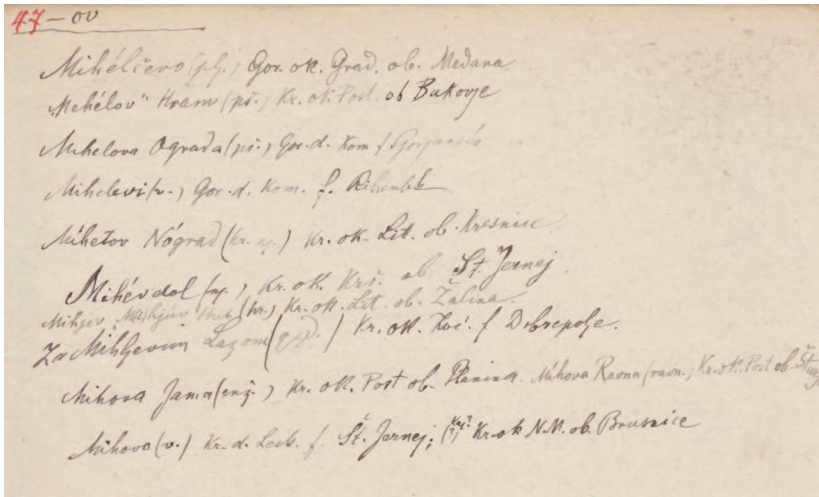 47 – ov
Mihélčevo (plj.) Gor. ok. Grad. ob. Medana
"Mehélov" Hram (pš.) Kr. ok. Post. ob Bukovje
Mihelova Ograda (pš.) Gor. d. Kom f
Mihelovi (v.) Gor. d. Kom. f. Rihenbk
Mihetov Nógrad (kr. nj.) Kr. ok. Lit. ob. Kresnice
Mihév dol (nj.) Kr. ok. Krš. ob Št. Jernej.
Mihjev (hr.) Kr. ok. Lit. ob. Žalina.
Za Mihljevim Lazom ( ) Kr. ok. Koč. f Dobrepolje.
Mihova Jama ( ) Kr. ok. Post ob. Planina. Míhova Ravna (ravn.) Kr. ok. Post ob.
Mihovo (v.) Kr. d. Lesk. f. Št. Jernej; Kr. ok N.M. ob. Brusnice